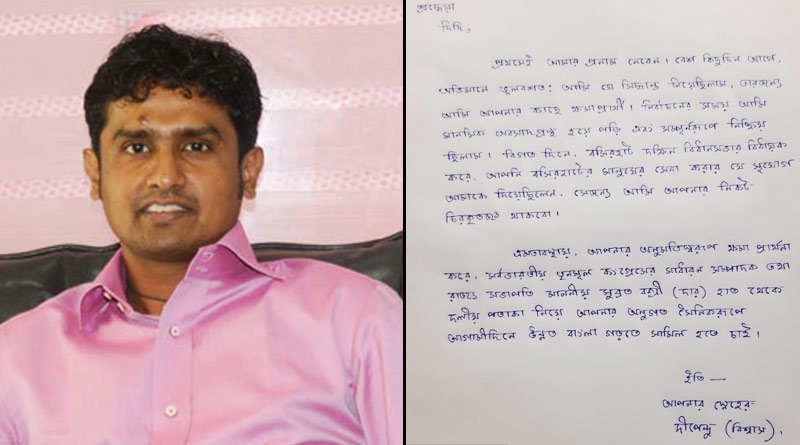 শ্রদ্ধেয়া
দিদি,
প্রথমেই আমার প্রনাম নেবেন। বেশ কিছুদিন আগে,
অভিমানে ভুলবশত: আমি যে সিদ্ধান্ত নিয়েছিলাম, তারজন্য
আমি আপনার কাছে ক্ষমাপ্রার্থী। নির্বাচনের সময় আমি
মানসিক অবসাদগ্রস্থ হয়ে পড়ি এবং সম্পূর্নরূপে নিষ্ক্রিয়
ছিলাম। বিগত দিনে, বসিরহাট দক্ষিন বিধানসভার বিধায়ক
করে, আপনি বসিরহাটের মানুষের সেবা করার যে সুযোগ
আমাকে দিয়েছিলেন, সেজন্য আমি আপনার নিকট
চিরকৃতজ্ঞ থাকবো।
এমতাবস্থায়, আপনার অনুমতিস্বরূপ ক্ষমা প্রার্থনা
করে, সর্বভারতীয় তৃনমূল কংগ্রেসের সাধারন সম্পাদক তথা
রাজ্য সভাপতি মাননীয় সুব্রত বক্সী (দার) হাত থেকে
দলীয় পতাকা নিয়ে আপনার অনুগত সৈনিকরূপে
আগামীদিনে উন্নত বাংলা গড়তে সামিল হতে চাই।
ইতি —
আপনার স্নেহের
দীপেন্দু (বিশ্বাস),